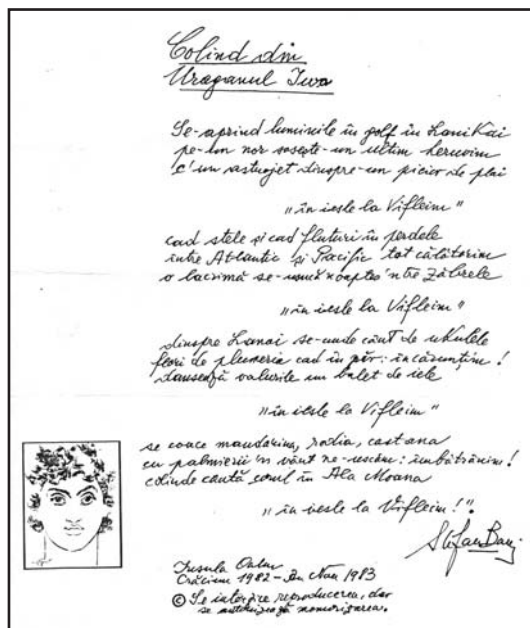 Colind din
Uraganul Iwa
Se-aprind luminile în golf în LaniKai
pe-un nor sosește-un ultim heruvim
c'un astrojet dinspre-un picior de plai
"în iesle la Vifleim"
cad stele și cad fluturi în perdele
între Atlantic și Pacific tot călătorim
o lacrimă se-usucă noaptea 'ntre zăbrele
"în iesle la Vifleim"
dinspre Lanai se-aude cânt de ukulele
flori de plumeria cad în păr: încărunțim!
dansează valurile un balet de iele
"în iesle la Vifleim"
se coace mandarina, rodia, castana
cu palmierii 'n vânt ne-uscăm: îmbătrânim!
colinde cântă corul în Ala Moana
"în iesle la Vifleim!".
Ștefan Baciu
Insula Oahu
Crăciun 1982 – An Nou 1983
© Se interzice reproducerea, dar
se autorizează memorizarea.